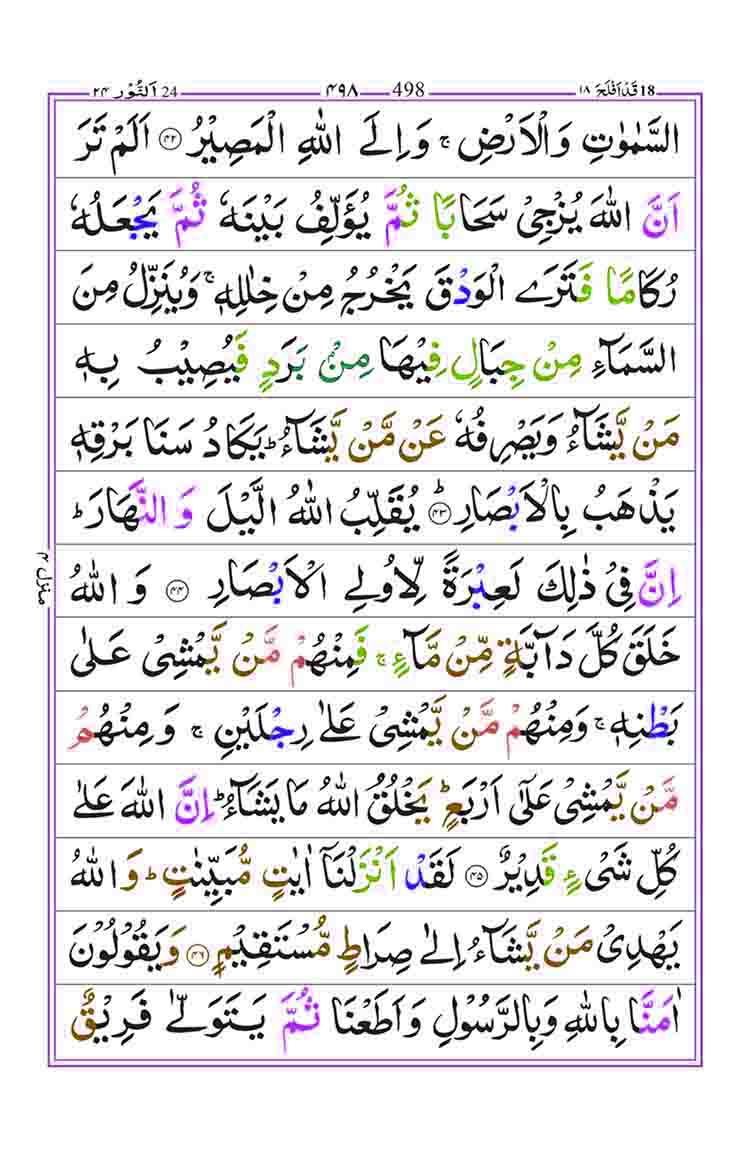 18 قَدْ اَفْلَحَ ١٨ 498 ۴۹۸ 24 اَلنُّوْر ٢۴
السَّمٰوٰتِ وَالْاَرْضِ ۚ وَاِلَى اللّٰهِ الْمَصِيْرُ ﴿۴۲﴾ اَلَمْ تَرَ
اَنَّ اللّٰهَ يُزْجِىْ سَحَابًا ثُمَّ يُؤَلِّفُ بَيْنَهٗ ثُمَّ يَجْعَلُهٗ
رُكَامًا فَتَرَى الْوَدْقَ يَخْرُجُ مِنْ خِلٰلِهٖ ۚ وَيُنَزِّلُ مِنَ
السَّمَآءِ مِنْ جِبَالٍ فِيْهَا مِنْۢ بَرَدٍ فَيُصِيْبُ بِهٖ
مَنْ يَّشَآءُ وَيَصْرِفُهٗ عَنْ مَّنْ يَّشَآءُ ؕ يَكَادُ سَنَا بَرْقِهٖ
يَذْهَبُ بِالْاَبْصَارِ ؕ ﴿۴۳﴾ يُقَلِّبُ اللّٰهُ الَّيْلَ وَ النَّهَارَ ؕ
اِنَّ فِىْ ذٰلِكَ لَعِبْرَةً لِّاُولِى الْاَبْصَارِ ﴿۴۴﴾ وَ اللّٰهُ
خَلَقَ كُلَّ دَآبَّةٍ مِّنْ مَّآءٍ ۚ فَمِنْهُمْ مَّنْ يَّمْشِىْ عَلٰى
بَطْنِهٖ ۚ وَمِنْهُمْ مَّنْ يَّمْشِىْ عَلٰى رِجْلَيْنِ ۚ وَ مِنْهُمْ
مَّنْ يَّمْشِىْ عَلٰٓى اَرْبَعٍ ؕ يَخْلُقُ اللّٰهُ مَا يَشَآءُ ؕ اِنَّ اللّٰهَ عَلٰى
كُلِّ شَىْءٍ قَدِيْرٌ ﴿۴۵﴾ لَقَدْ اَنْزَلْنَاۤ اٰيٰتٍ مُّبَيِّنٰتٍ ؕ وَاللّٰهُ
يَهْدِىْ مَنْ يَّشَآءُ اِلٰى صِرَاطٍ مُّسْتَقِيْمٍ ﴿۴۶﴾ وَيَقُوْلُوْنَ
اٰمَنَّا بِاللّٰهِ وَبِالرَّسُوْلِ وَاَطَعْنَا ثُمَّ يَتَوَلّٰى فَرِيْقٌ
منزل ۴